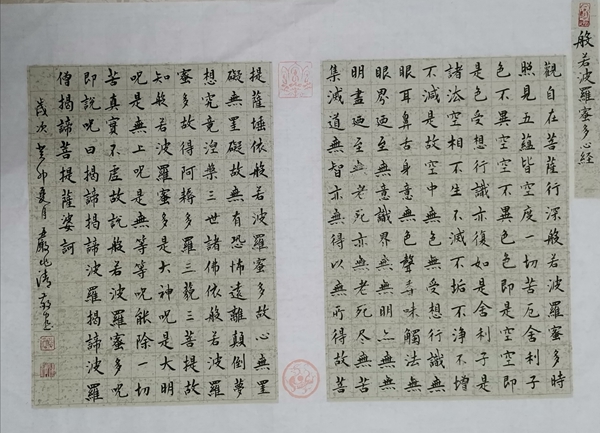 般若波羅蜜多心経
觀自在菩薩行深般若波羅蜜多時
照見五蘊皆空度一切苦厄舍利子
色不異空空不異色色即是空空即
是色受想行識亦復如是舍利子是
諸法空相不生不滅不垢不淨不增
不減是故空中無色無受想行識無
眼耳鼻舌身意無色聲香味觸法無
眼界廼至無意識界無無明亦無無
明盡廼至無老死亦無老死盡無苦
集滅道無智亦無得以無所得故菩
提薩埵依般若波羅蜜多故心無罣
礙無罣礙故無有恐怖遠離顛倒夢
想究竟涅槃三世諸佛依般若波羅
蜜多故得阿耨多羅三藐三菩提故
知般若波羅蜜多是大神呪是大明
呪是無上呪是無等等呪能除一切
苦真實不虛故說般若波羅蜜多呪
即說呪曰揭諦揭諦波羅揭諦波羅
僧揭諦菩提薩婆訶
歲次癸卯夏月嚴兆清敬